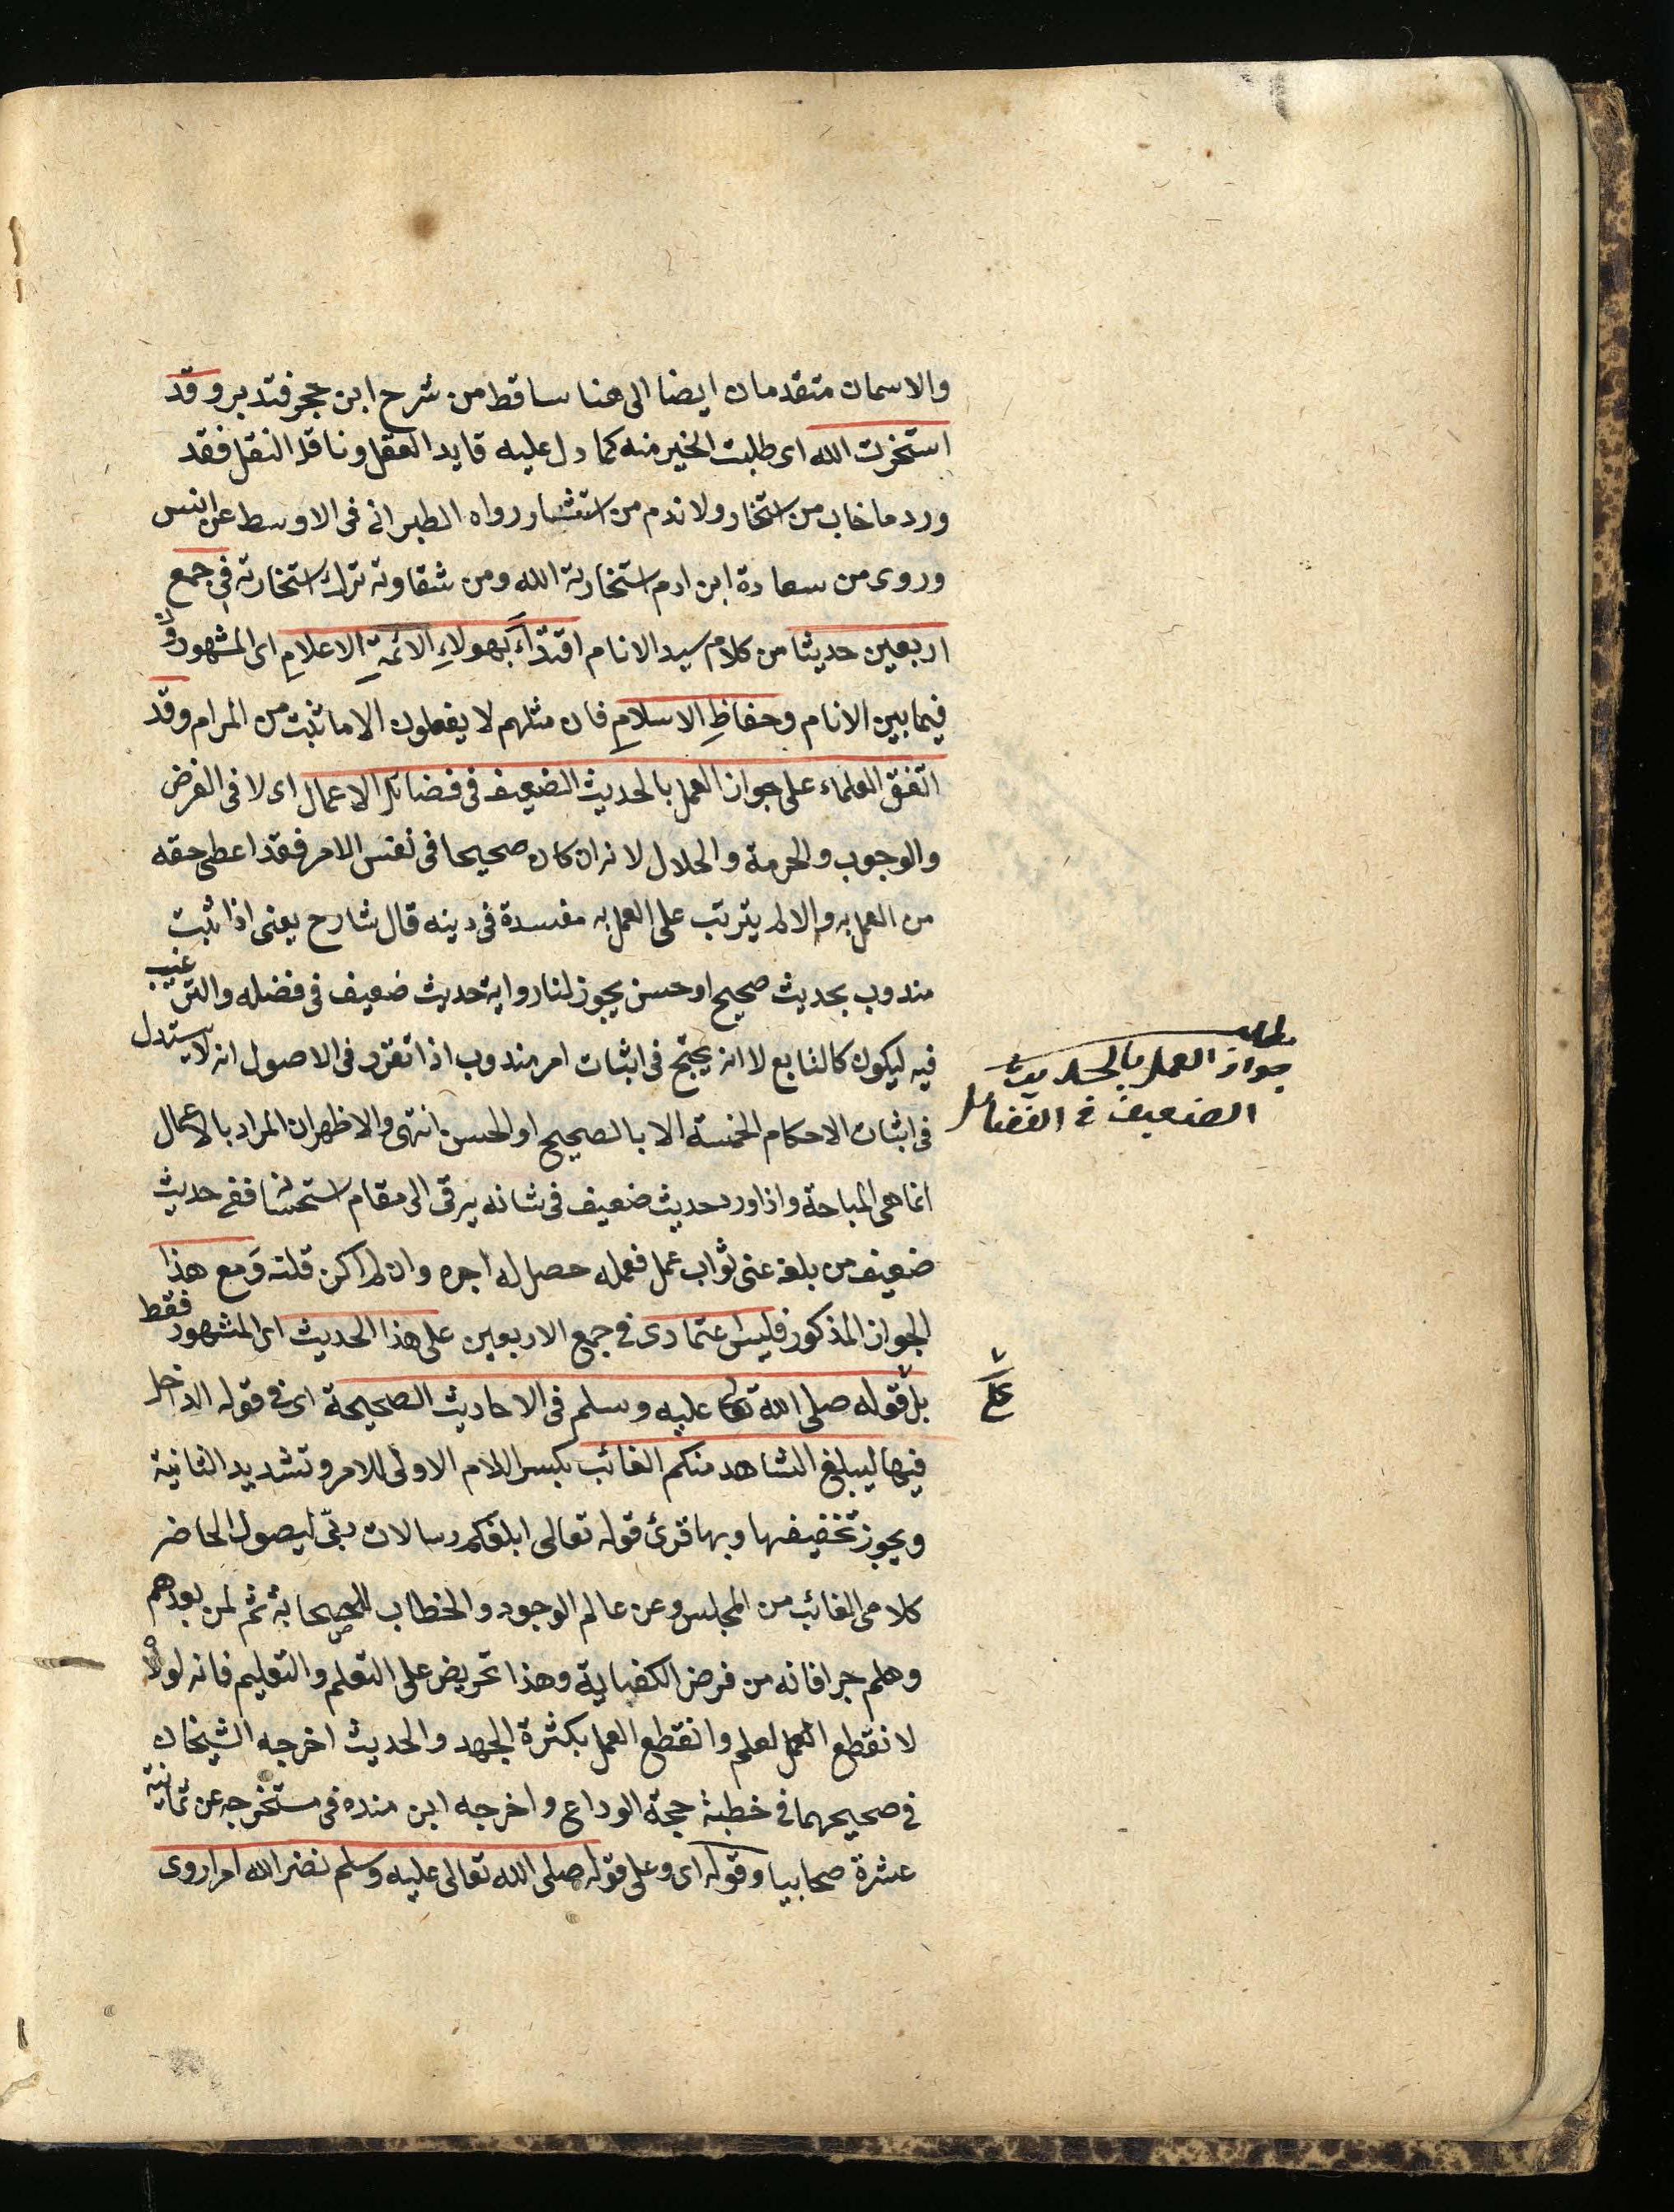 والاسمان متقدمان ايضا الى هنا ساقط من شرح ابن حجر فتدبر وقد
استخرت الله اى طلبت الخير منه كما دل عليه قايد العقل وناقل النقل فقد
ورد ما خاب من استخار ولا ندم من استشار رواه الطبرانى فى الاوسط عن انس
وروى من سعادة ابن ادم استخارته الله ومن شقاوته ترك استخارته فى جمع
اربعين حديثا من كلام سيد الانام اقتداءً بهولاءِ الائمةِ الاعلامِ اى المشهورون
فيما بين الانام وحفاظِ الاسلامِ فان مثلهم لا يفعلون الا ما ثبت من المرام وقد
اتفق العلماء على جواز العمل بالحديث الضعيف فى فضائل الاعمال اى لا فى الفرض
والوجوب والحرمة والحلال لانه ان كان صحيحا فى نفس الامر فقد اعطى حقه
من العمل به والا لم يترتب على العمل به مفسدة فى دينه قال شارح يعنى اذا ثبت
مندوب بحديث صحيح او حسن يجوز لنا رواية حديث ضعيف فى فضله والترغيب
فيه ليكون كالتابع لا انه يحتج فى اثبات امر مندوب اذا تقرر فى الاصول انه لا يستدل
فى اثبات الاحكام الخمسة الا بالصحيح او الحسن انتهى والاظهر ان المراد بالاعمال
انما هى المباحة واذا ورد حديث ضعيف فى شانه يرقى الى مقام استحسانه ففى حديث
ضعيف من بلغه عنى ثواب عمل فعمله حصل له اجره وان لم اكن قلته وَمع هذا
الجواز المذكور فليس اعتمادى فى جمع الاربعين على هذا الحديث اى المشهور فقط
بل قوله صلى الله تعالى عليه وسلم فى الاحاديث الصحيحة اى فى قوله الداخل
فيها ليبلغ الشاهد منكم الغائب بكسر اللام الاولى للامر وتشديد الثانية
ويجوز تخفيفها وبها قرئ قوله تعالى ابلغكم رسالات ربى ليصول الحاضر
كلامى الغائب من المجلس وعن عالم الوجود والخطاب للصحابة ثم لمن بعدهم
وهلم جرا فانه من فرض الكفاية وهذا تحريض على التعلم والتعليم فانه لولاه
لا نقطع العمل لعلم وانقطع العمل بكثرة الجهد والحديث اخرجه الشيخان
فى صحيحهما فى خطبة حجة الوداع واخرجه ابن منده فى مستخرجه عن ثمانية
عشرة صحابيا وقوله اى وعلى قوله صلى الله تعالى عليه وسلم نضر الله امرا روى
مطلب
جواز العمل بالحديث
الضعيف فى الفضائل
على